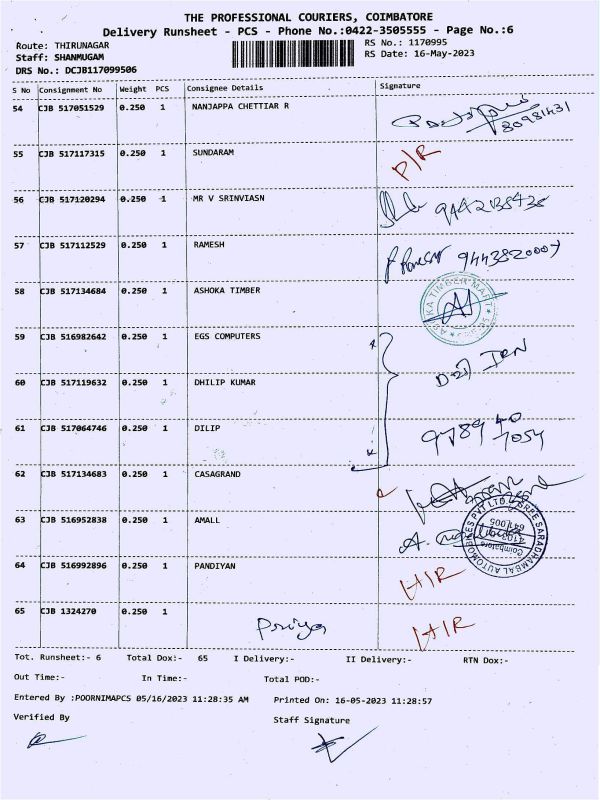 THE PROFESSIONAL COURIERS, COIMBATORE
Delivery Runsheet - PCS - Phone No.:0422-3505555 - Page No.:6
Route: THIRUNAGAR RS No.: 1170995
Staff: SHANMUGAM RS Date: 16-May-2023
DRS No.: DCJB117099506
S No Consignment No Weight PCS Consignee Details Signature
54 CJB 517051529 0.250 1 NANJAPPA CHETTIAR R
80981431
55 CJB 517117315 0.250 1 SUNDARAM P/R
56 CJB 517120294 0.250 1 MR V SRINVIASN
57 CJB 517112529 0.250 1 RAMESH
58 CJB 517134684 0.250 1 ASHOKA TIMBER
59 CJB 516982642 0.250 1 EGS COMPUTERS
60 CJB 517119632 0.250 1 DHILIP KUMAR
61 CJB 517064746 0.250 1 DILIP
62 CJB 517134683 0.250 1 CASAGRAND
63 CJB 516952838 0.250 1 AMALL
64 CJB 516992896 0.250 1 PANDIYAN H/R
65 CJB 1324270 0.250 1 Priya H/R
Tot. Runsheet:- 6 Total Dox:- 65 I Delivery:- II Delivery:- RTN Dox:-
Out Time:- In Time:- Total POD:-
Entered By :POORNIMAPCS 05/16/2023 11:28:35 AM Printed On: 16-05-2023 11:28:57
Verified By Staff Signature